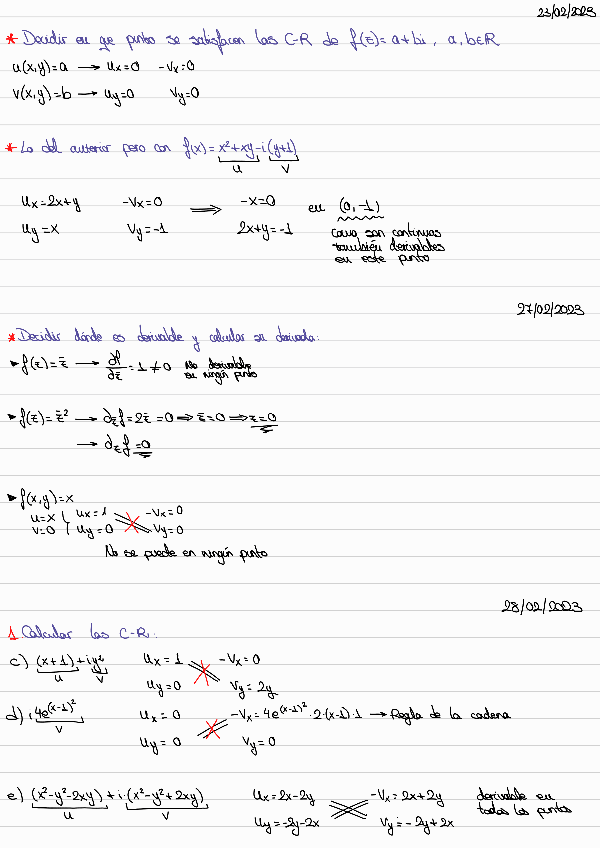 23/02/2023
* Decidir en qe puntos se satisfacen las C-R de f(z)=a+bi, a,b∈R
u(x,y)=a → ux=0 -vx=0
v(x,y)=b → uy=0 vy=0
* Lo del anterior pero con f(x)=x²+xy-i(y+1)
u v
ux=2x+y -vx=0 ⇒ -x=0 en (0,-1)
uy=x vy=-1 2x+y=-1 como son continuas
también derivables
en este punto
27/02/2023
* Decidir dónde es derivable y calcular su derivada:
▸f(z)=z̄ → ∂f/∂z̄ = 1≠0 No derivable
en ningún punto
▸f(z)=z̄² → ∂z̄f=2z̄=0 ⇒ z̄=0 ⇒ z=0
→ ∂zf=0
▸f(x,y)=x
u=x ux=1 -vx=0
v=0 uy=0 vy=0
No se puede en ningún punto
28/02/2023
1 Calcular las C-R:
c) (x+1)+iy² ux=1 -vx=0
u v uy=0 vy=2y
d) i4e^(x-1)² ux=0 -vx=4e^(x-1)²·2(x-1)·1 → Regla de la cadena
v uy=0 vy=0
e) (x²-y²-2xy)+i·(x²-y²+2xy) ux=2x-2y -vx=2x+2y derivable en
u v uy=-2y-2x vy=-2y+2x todos los puntos